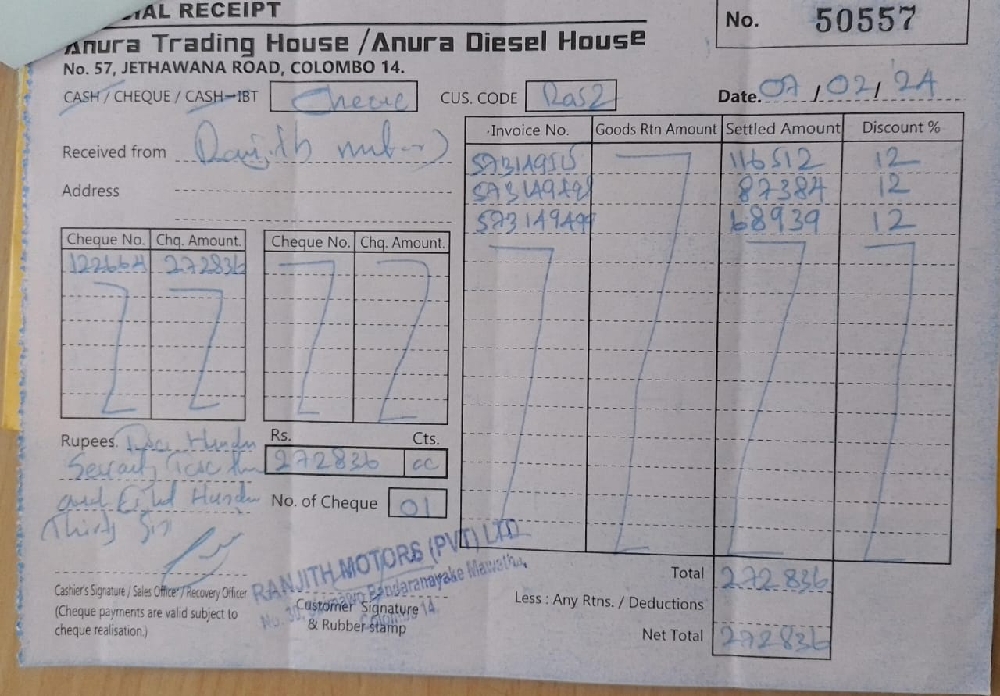 IAL RECEIPT
No. 50557
Anura Trading House / Anura Diesel House
No. 57, JETHAWANA ROAD, COLOMBO 14.
CASH / CHEQUE / CASH-IBT Cheque CUS. CODE Ras2 Date. 07 / 02 / 24
Received from Ranjith
Address
Invoice No. Goods Rtn Amount Settled Amount Discount %
116512 12
87384 12
68939 12
Cheque No. Chq. Amount. Cheque No. Chq. Amount.
122664 272836
Rupees. Two Hundred
Seventy Two
and Eight Hundred
Thirty Six
Rs. Cts.
272836 00
No. of Cheque 01
Cashier's Signature / Sales Officer / Recovery Officer
(Cheque payments are valid subject to
cheque realisation.)
RANJITH MOTORS (PVT) LTD
Bandaranayake Mawatha,
Customer Signature
& Rubber stamp
Total 272836
Less : Any Rtns. / Deductions
Net Total 272836